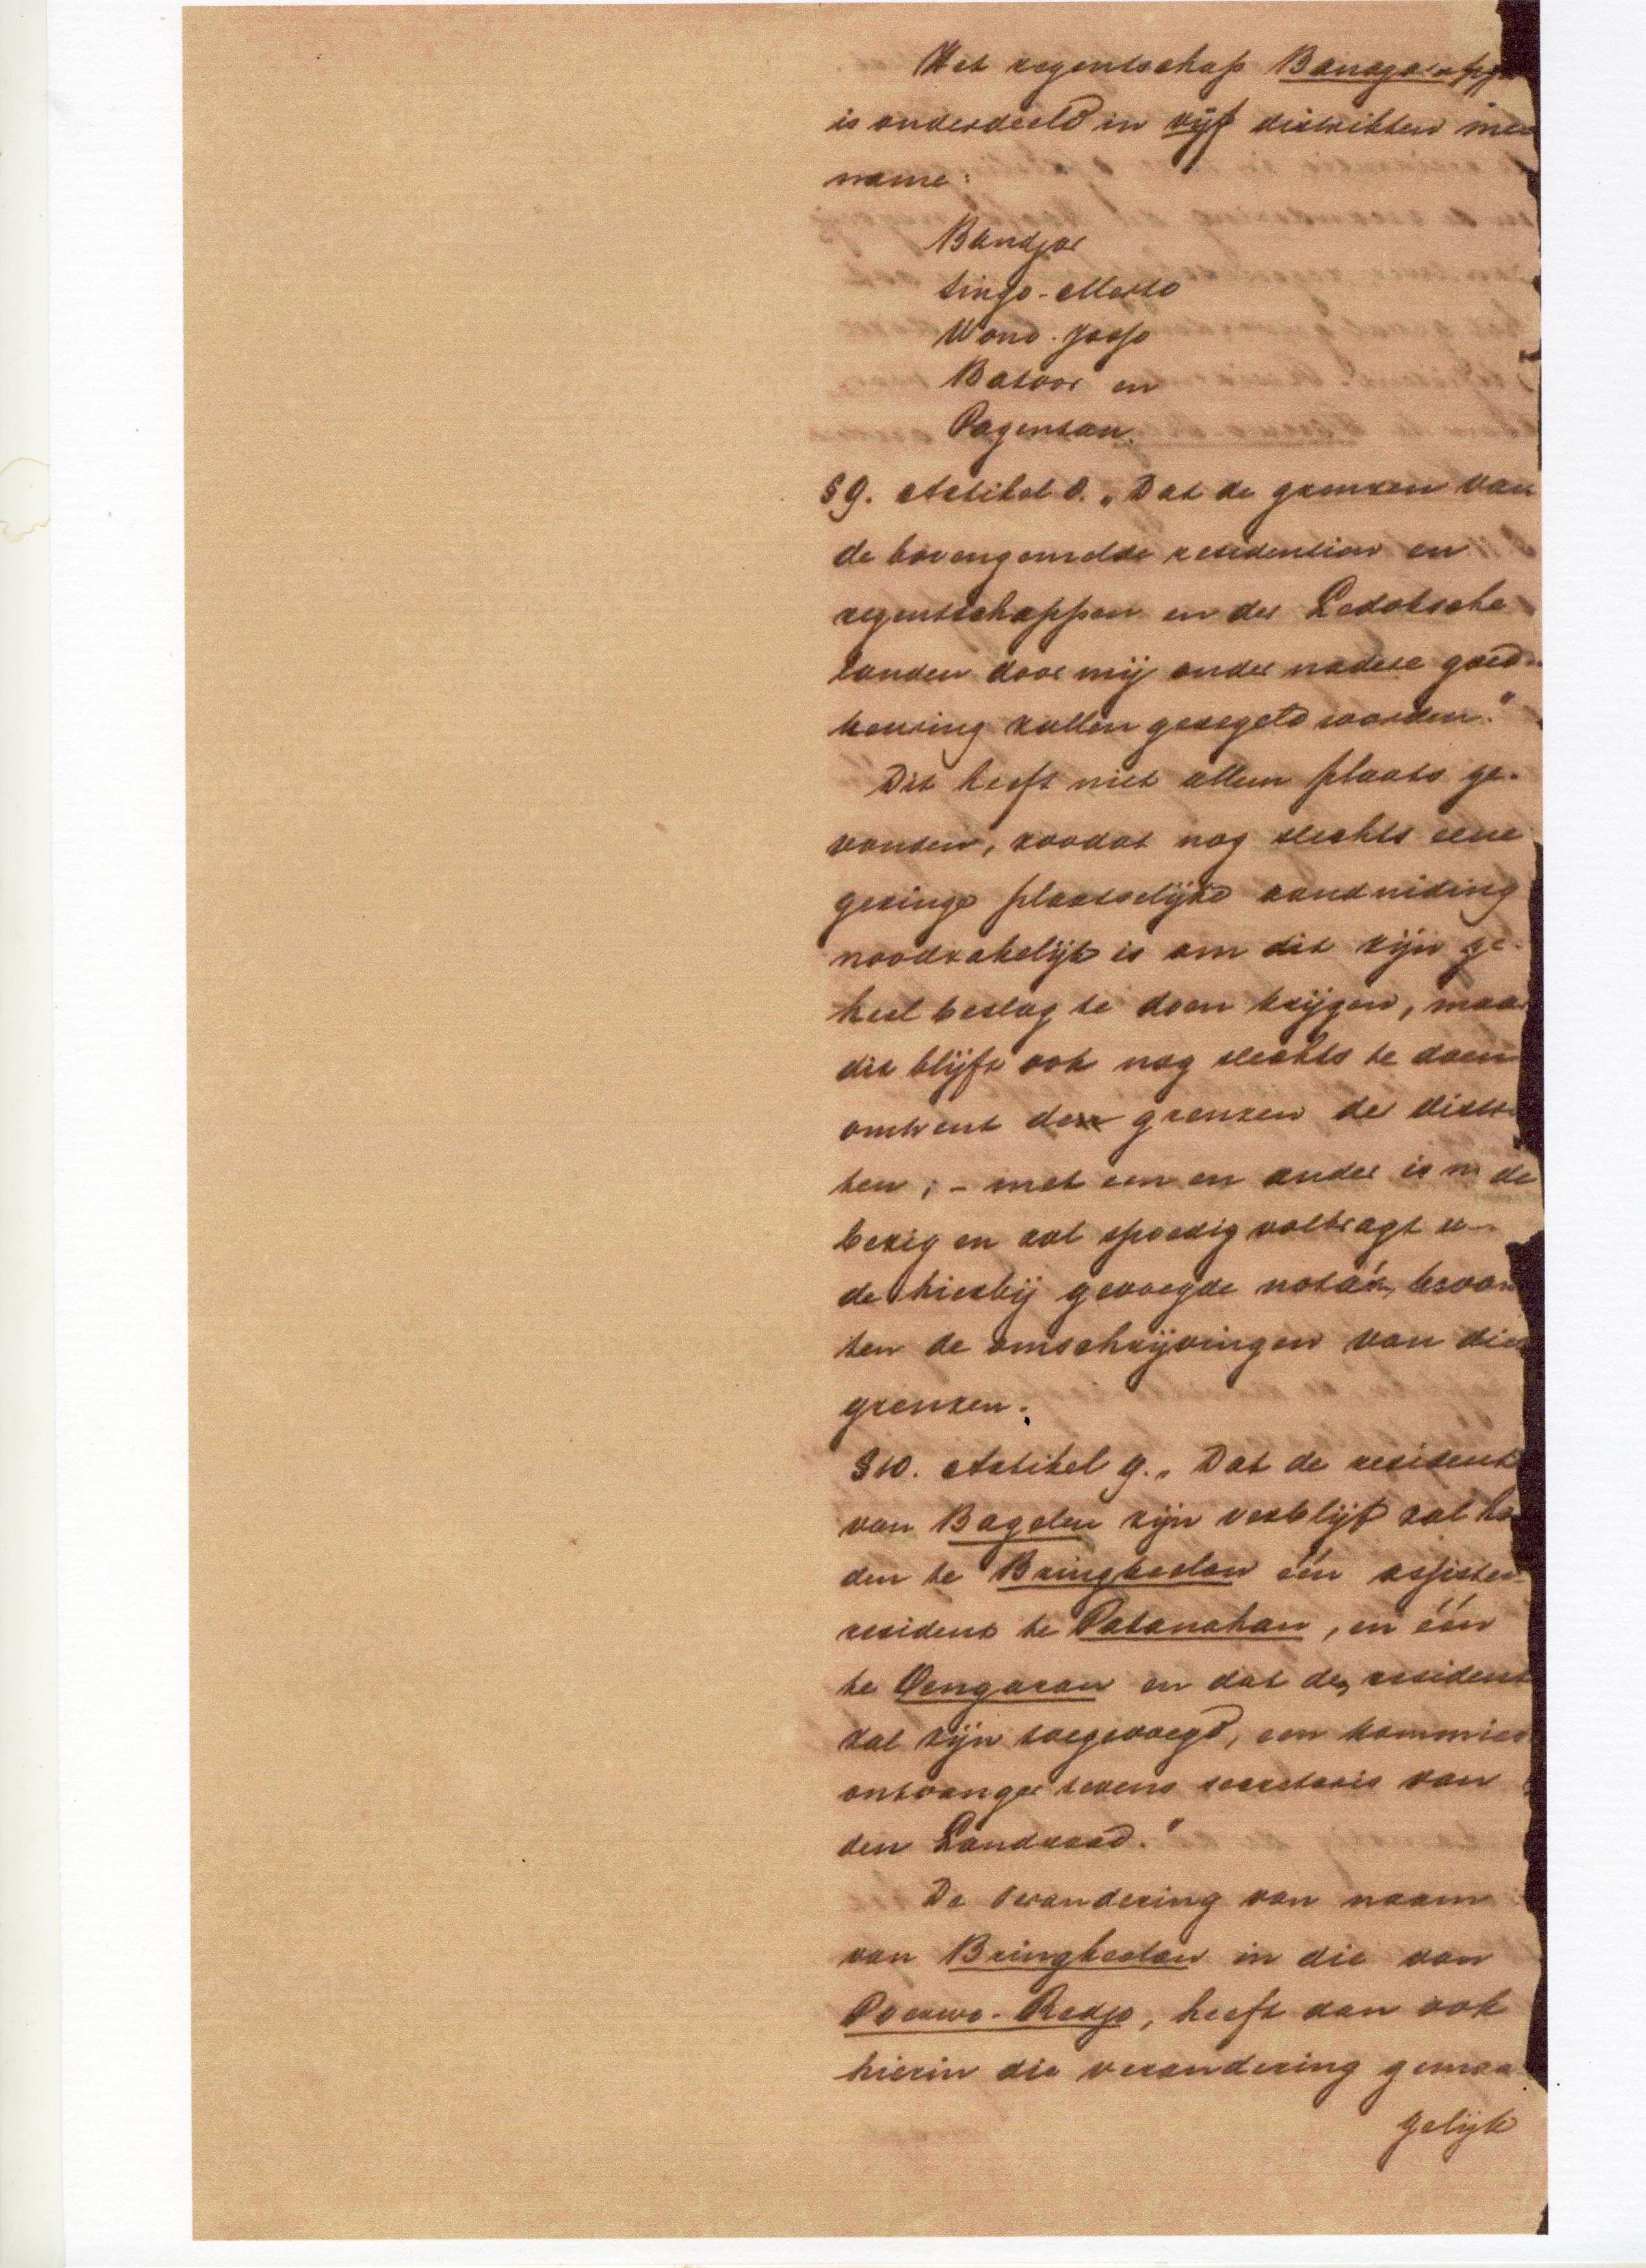 Het regentschap
is onderdeeld in vijf distrikten
name:
Bandjar
Singo-Merto
Wono-Joojo
Batoor en
Pagentan.
§ 9. Artikel 8. „Dat de grenzen van
de bovengemelde residentien en
regentschappen en der Ledoksche
landen door mij onder nadere goed-
keuring zullen geregeld worden."
Dit heeft niet alleen plaats ge-
vonden, zoodat nog slechts eene
geringe plaatselijke aanduiding
noodzakelijk is om dit zijn ge-
heel beslag te doen krijgen, maar
dit blijft ook nog slechts te doen
omtrent de grenzen der
ten; - met een en ander is
bezig en zal spoedig volbragt
de hierbij gevoegde nota's,
ten de omschrijvingen van
grenzen.
§ 10. Artikel 9. „Dat de resident
van Bagelen zijn verblijf zal
den te Bringkeelan één
resident te Patanahan, en één
te Oengaran en dat de resident
zal zijn toegevoegd, een kommies
ontvanger tevens secretaris van
den Landraad."
De verandering van naam
van Bringkeelan in die van
Poerwo-Redjo, heeft dan ook
hierin die verandering
gelijk